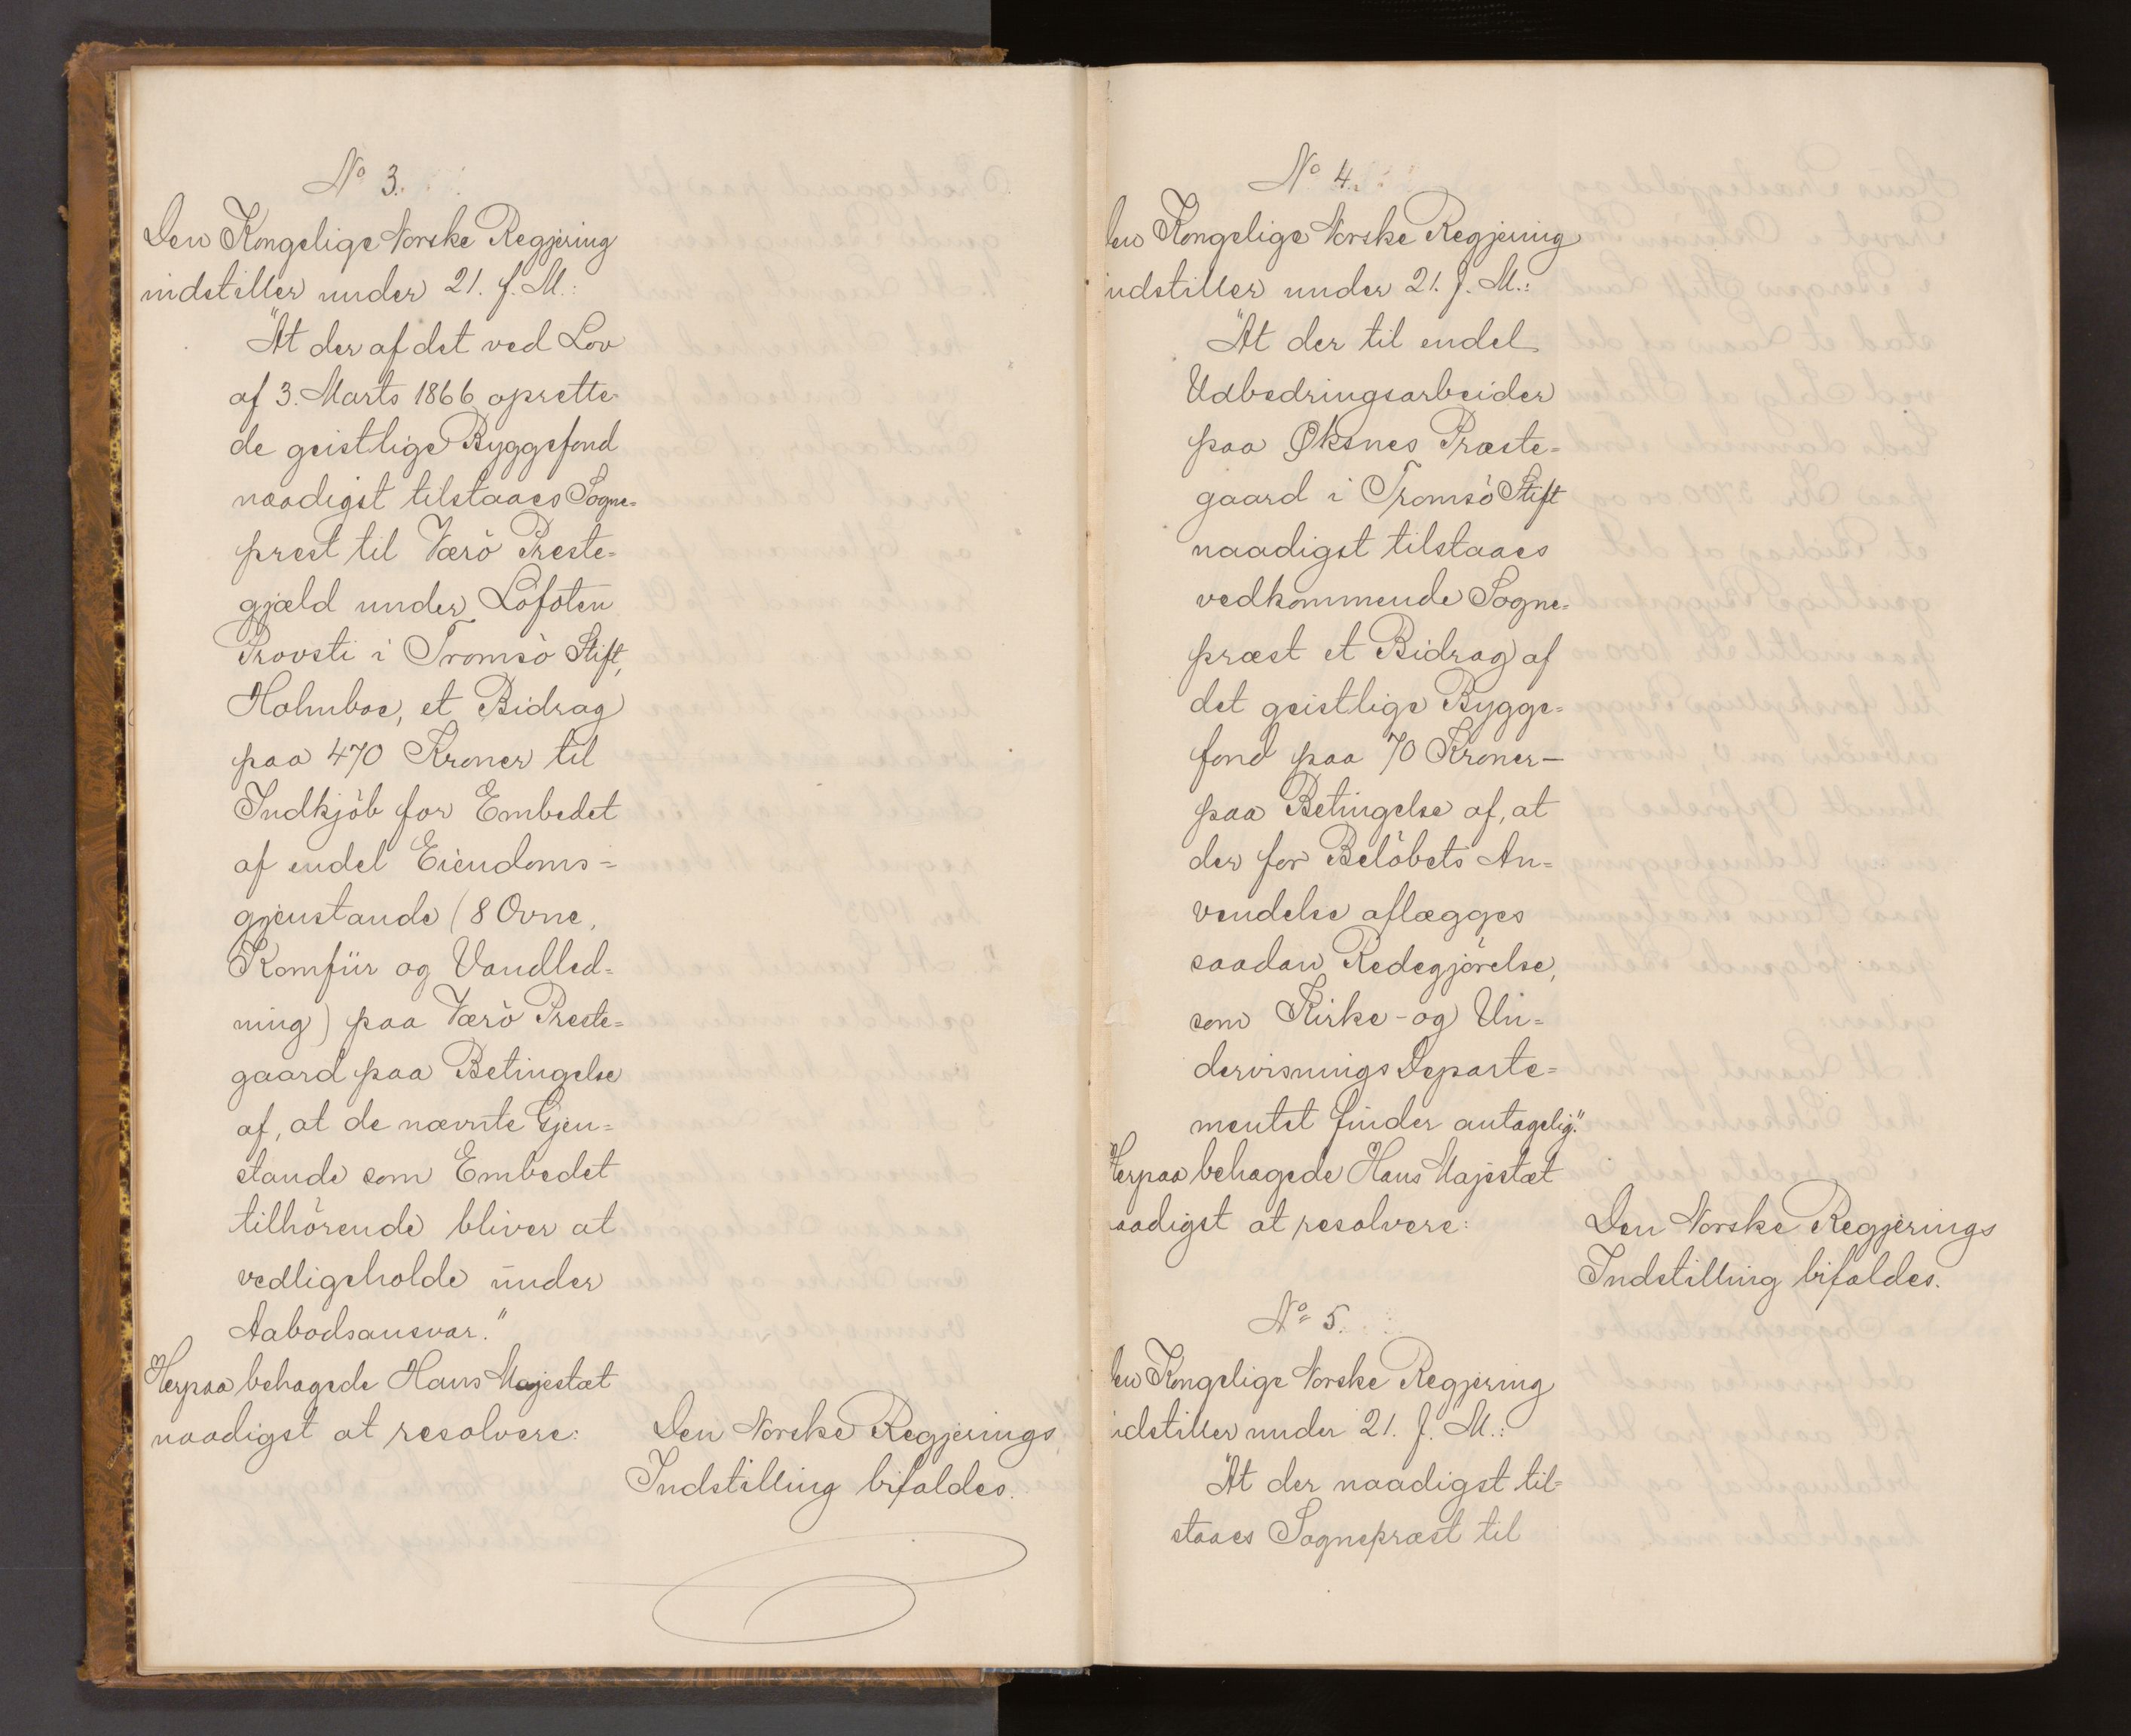 No 3.
Den Kongelige Norske Regjering
indstiller under 21. f. M.:
"At der af det ved Lov
af 3. Marts 1866 oprette
de geistlige Byggefond
naadigst tilstaaes Sogne=
prest til Værö Preste=
gjæld under Lofoten
Provsti i Tromsö Stift,
Holmboe, et Bidrag
paa 470 Kroner til
Indkjöb for Embedet
af endel Eiendoms=
gjenstande (8 Ovne,
Komfür og Vandled=
ning) paa Værö Preste=
gaard paa Betingelse
af, at de nævnte Gjen=
stande som Embedet
tilhörende bliver at
vedligeholde under
Aabodsansvar."
Herpaa behagede Hans Majestæt
naadigst at resolvere:
Den Norske Regjerings
Indstilling bifaldes.
No 4.
den Kongelige Norske Regjering
indstiller under 21. f. M.:
"At der til endel
Udbedringsarbeider
paa Øksnes Præste=
gaard i Tromsö Stift
naadigst tilstaaes
vedkommende Sogne=
præst et Bidrag af
det geistlige Bygge=
fond paa 70 Kroner—
paa Betingelse af, at
der for Belöbets An=
vendelse aflægges
saadan Redegjörelse,
som Kirke- og Un=
dervisnings Departe=
mentet finder antagelig."
Herpaa behagede Hans Majestæt
aadigst at resolvere:
Den Norske Regjerings
Indstilling bifaldes.
No 5.
den Kongelige Norske Regjering
idstiller under 21. f. M.:
"At der naadigst til=
staaes Sognepræst til